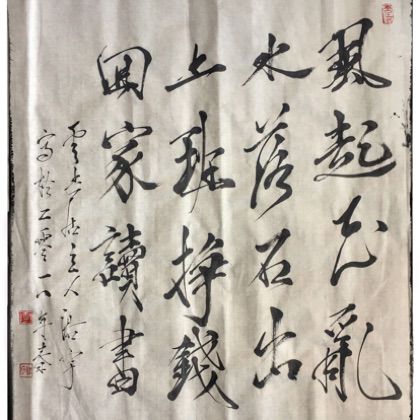 風起花亂
水落石出
上班掙錢
回家讀書
雲主人
寫於二零一八年春